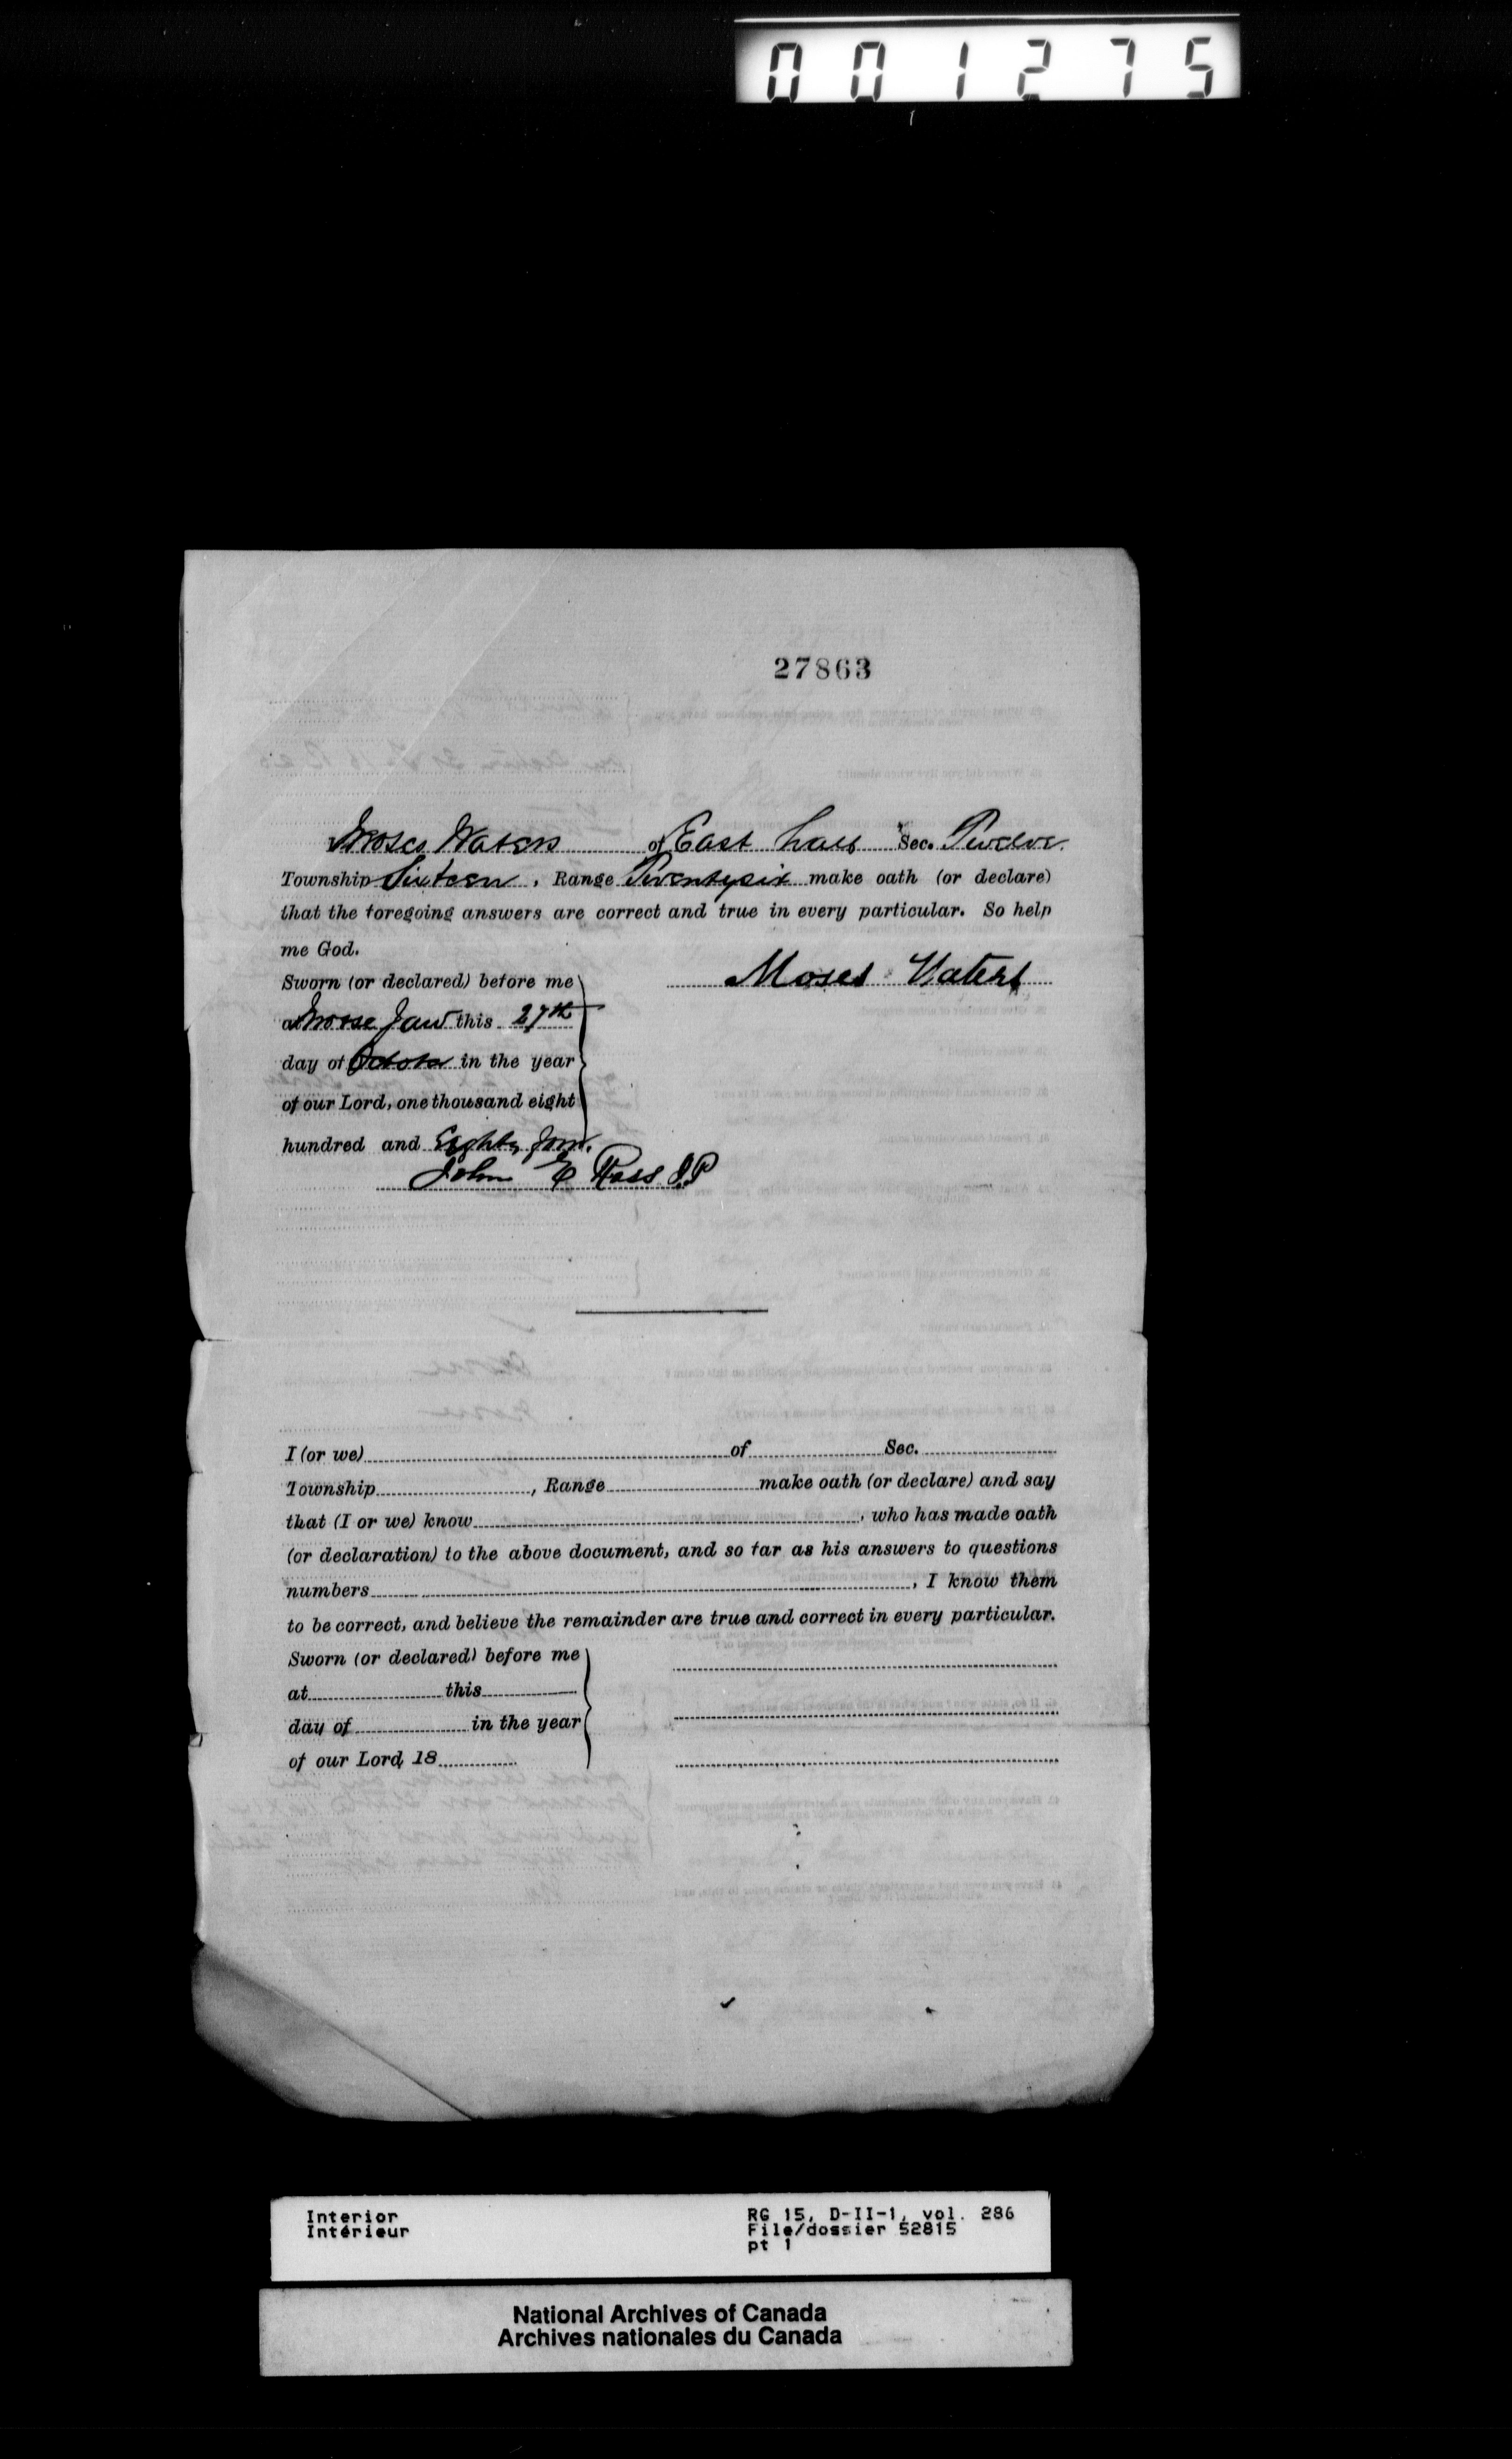 001275
27863
Moses Waters of East half Sec. Twelve
Township Sixteen, Range Twentysix make oath (or declare)
that the foregoing answers are correct and true in every particular. So help
me God.
Moses Waters
Sworn (or declared) before me
at Moose Jaw this 27th
day of October in the year
of our Lord, one thousand eight
hundred and Eighty four.
John E Ross J.P
I (or we) of Sec.
Township , Range make oath (or declare) and say
that (I or we) know , who has made oath
(or declaration) to the above document, and so far as his answers to questions
numbers , I know them
to be correct, and believe the remainder are true and correct in every particular.
Sworn (or declared) before me
at this
day of in the year
of our Lord, 18
Interior
Intérieur
RG 15, D-II-1, vol. 286
File/dossier 52815
pt 1
National Archives of Canada
Archives nationales du Canada